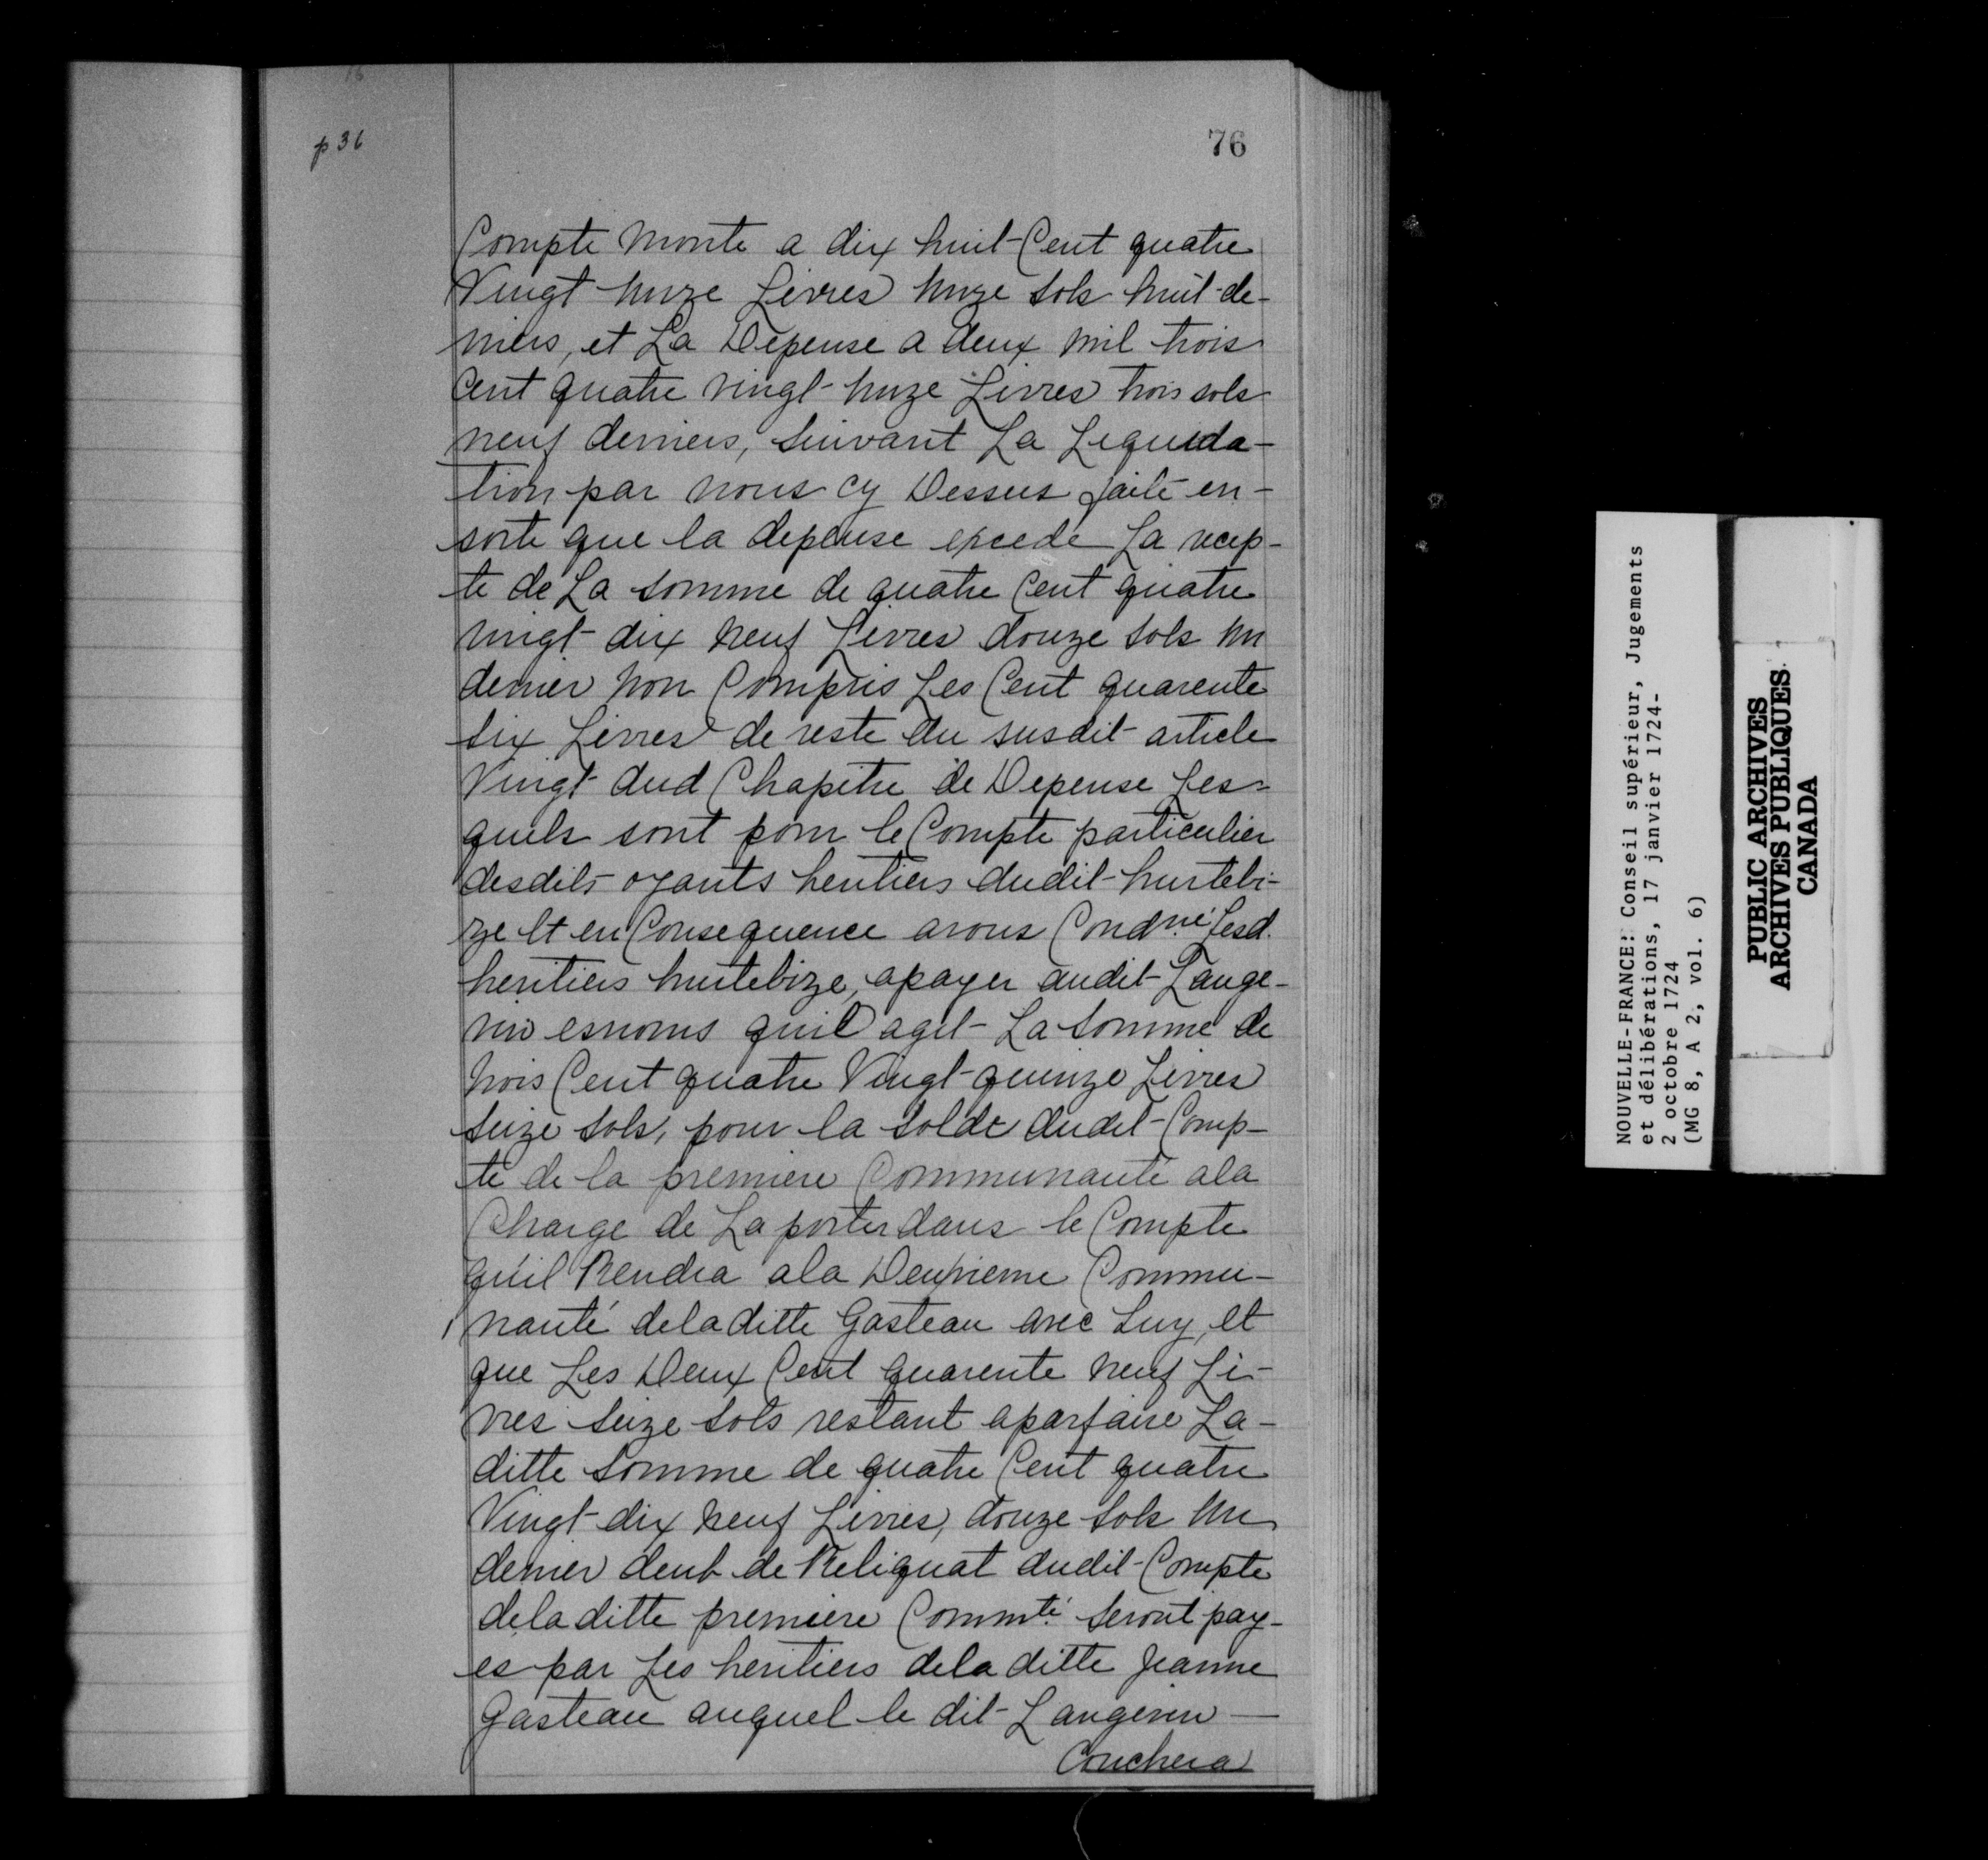 p 36
76
Compte monte a dix huit Cent quatre
Vingt unze Livres unze sols huit de-
niers, et La Depense a deux mil trois
Cent quatre vingt unze Livres trois sols
neuf deniers, suivant La Liquida-
tion par nous cy Dessus faite en-
sorte que la depense excede La recep-
te de La somme de quatre Cent quatre
vingt dix neuf Livres douze sols un
denier non Compris Les Cent quarente
six Livres de reste du susdit article
Vingt dud Chapitre de Depense Les-
quels sont pour le Compte particulier
desdits oyants heritiers dudit hurtebi-
ze Et en Consequence avons Condné Lesd.
heritiers hurtebize, apayer audit Lange-
vin esnoms quil agit La somme de
trois Cent quatre Vingt quinze Livres
seize sols, pour la solde dudit Comp-
te de la premiere Communauté ala
Charge de La porter dans le Compte
qu'il Rendra ala Deuxieme Commu-
nauté deladitte Gasteau avec Luy, et
que Les Deux Cent quarente neuf Li-
vres seize sols restant aparfaire La-
ditte somme de quatre Cent quatre
Vingt dix neuf Livres, douze sols un
denier deub de Reliquat dudit Compte
deladitte premiere Commté seront pay-
es par Les heritiers deladitte Jeanne
Gasteau auquel le dit Langevin
Couchera
NOUVELLE-FRANCE: Conseil supérieur, Jugements
et délibérations, 17 janvier 1724-
2 octobre 1724
(MG 8, A 2, vol. 6)
PUBLIC ARCHIVES
ARCHIVES PUBLIQUES
CANADA